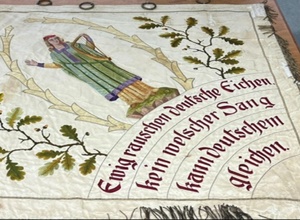 Ewig rauschen deutsche Eichen
kein welscher Sang
kann deutschem
gleichen.